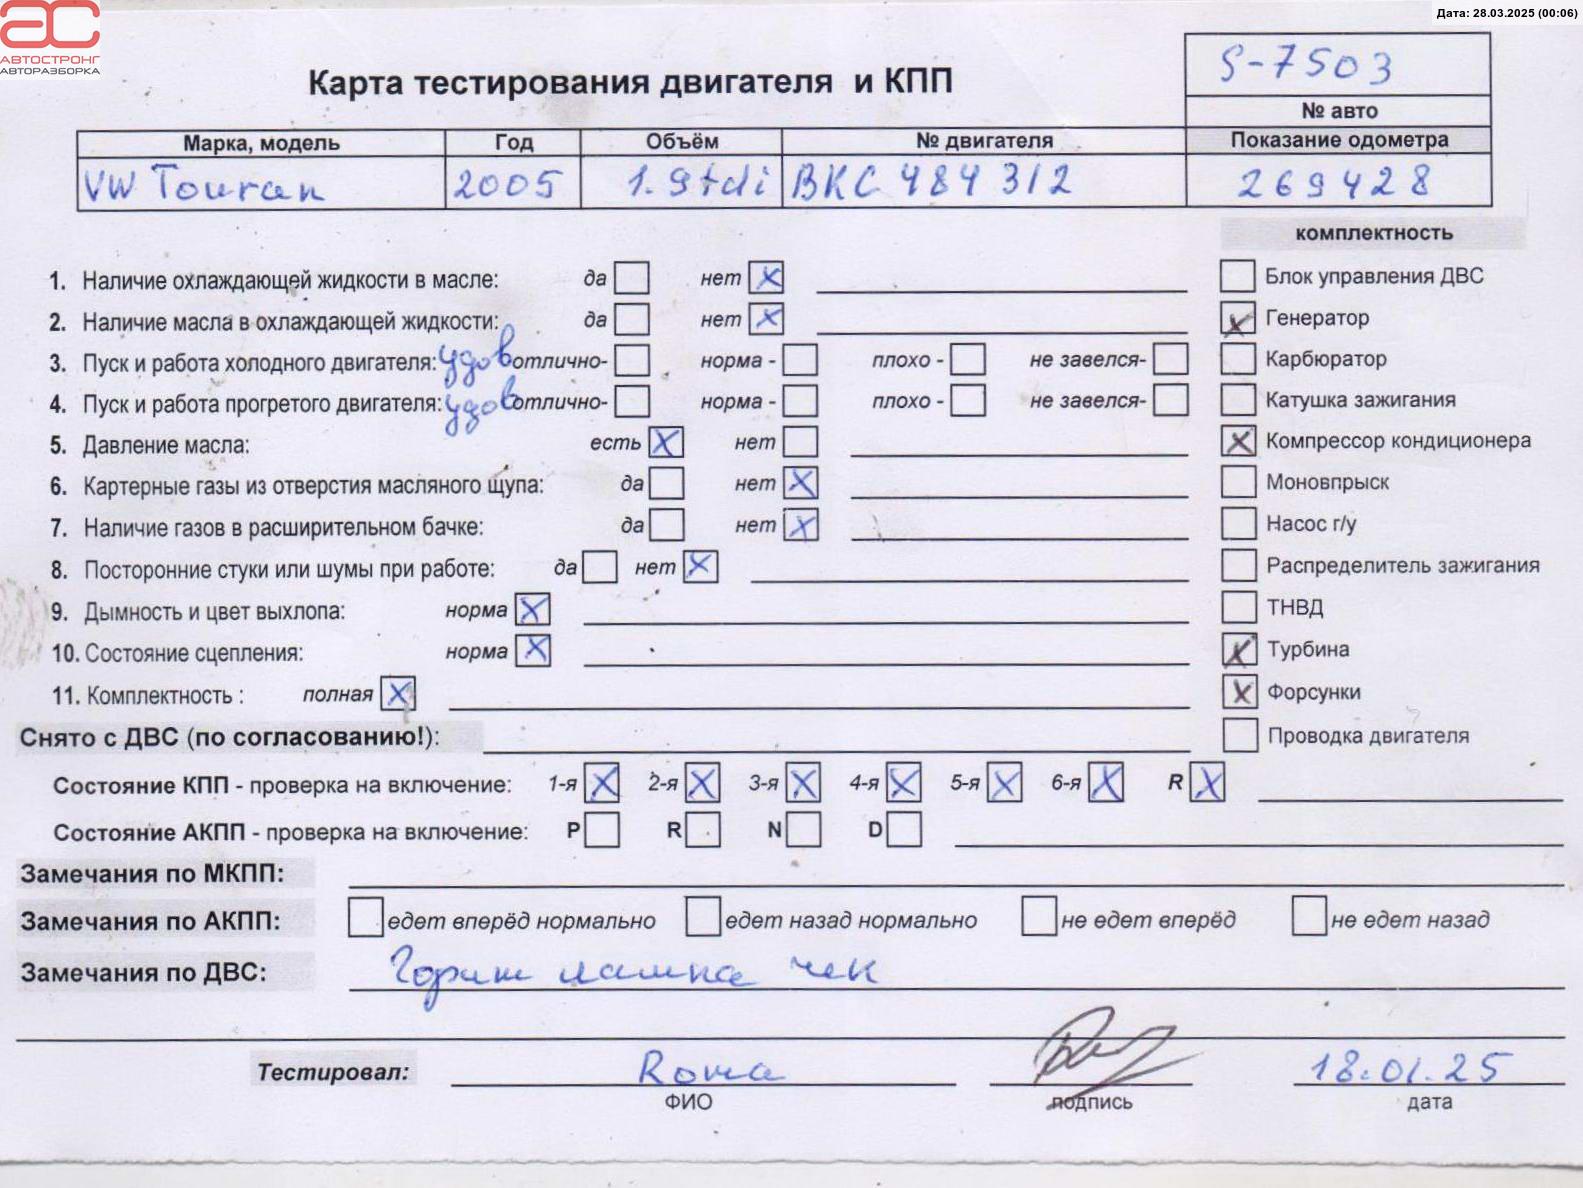 Дата: 28.03.2025 (00:06)
АС
АВТОСТРОНГ
АВТОРАЗБОРКА
S-7503
Карта тестирования двигателя и КПП
№ авто
Марка, модель Год Объём № двигателя Показание одометра
VW Touran 2005 1.9tdi BKC 484 312 269428
комплектность
1. Наличие охлаждающей жидкости в масле: да нет X
Блок управления ДВС
2. Наличие масла в охлаждающей жидкости: да нет X
X Генератор
3. Пуск и работа холодного двигателя: удов отлично- норма - плохо - не завелся-
Карбюратор
4. Пуск и работа прогретого двигателя: удов отлично- норма - плохо - не завелся-
Катушка зажигания
5. Давление масла: есть X нет
X Компрессор кондиционера
6. Картерные газы из отверстия масляного щупа: да нет X
Моновпрыск
7. Наличие газов в расширительном бачке: да нет X
Насос г/у
8. Посторонние стуки или шумы при работе: да нет X
Распределитель зажигания
9. Дымность и цвет выхлопа: норма X
ТНВД
10. Состояние сцепления: норма X
X Турбина
11. Комплектность : полная X
X Форсунки
Снято с ДВС (по согласованию!):
Проводка двигателя
Состояние КПП - проверка на включение: 1-я X 2-я X 3-я X 4-я X 5-я X 6-я X R X
Состояние АКПП - проверка на включение: P R N D
Замечания по МКПП:
Замечания по АКПП: едет вперёд нормально едет назад нормально не едет вперёд не едет назад
Замечания по ДВС: Горит лампа чек
Тестировал: Roma 18.01.25
ФИО подпись дата